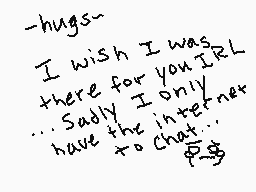 ~hugs~
I wish I was
there for you IRL
... Sadly I only
have the internet
to chat...